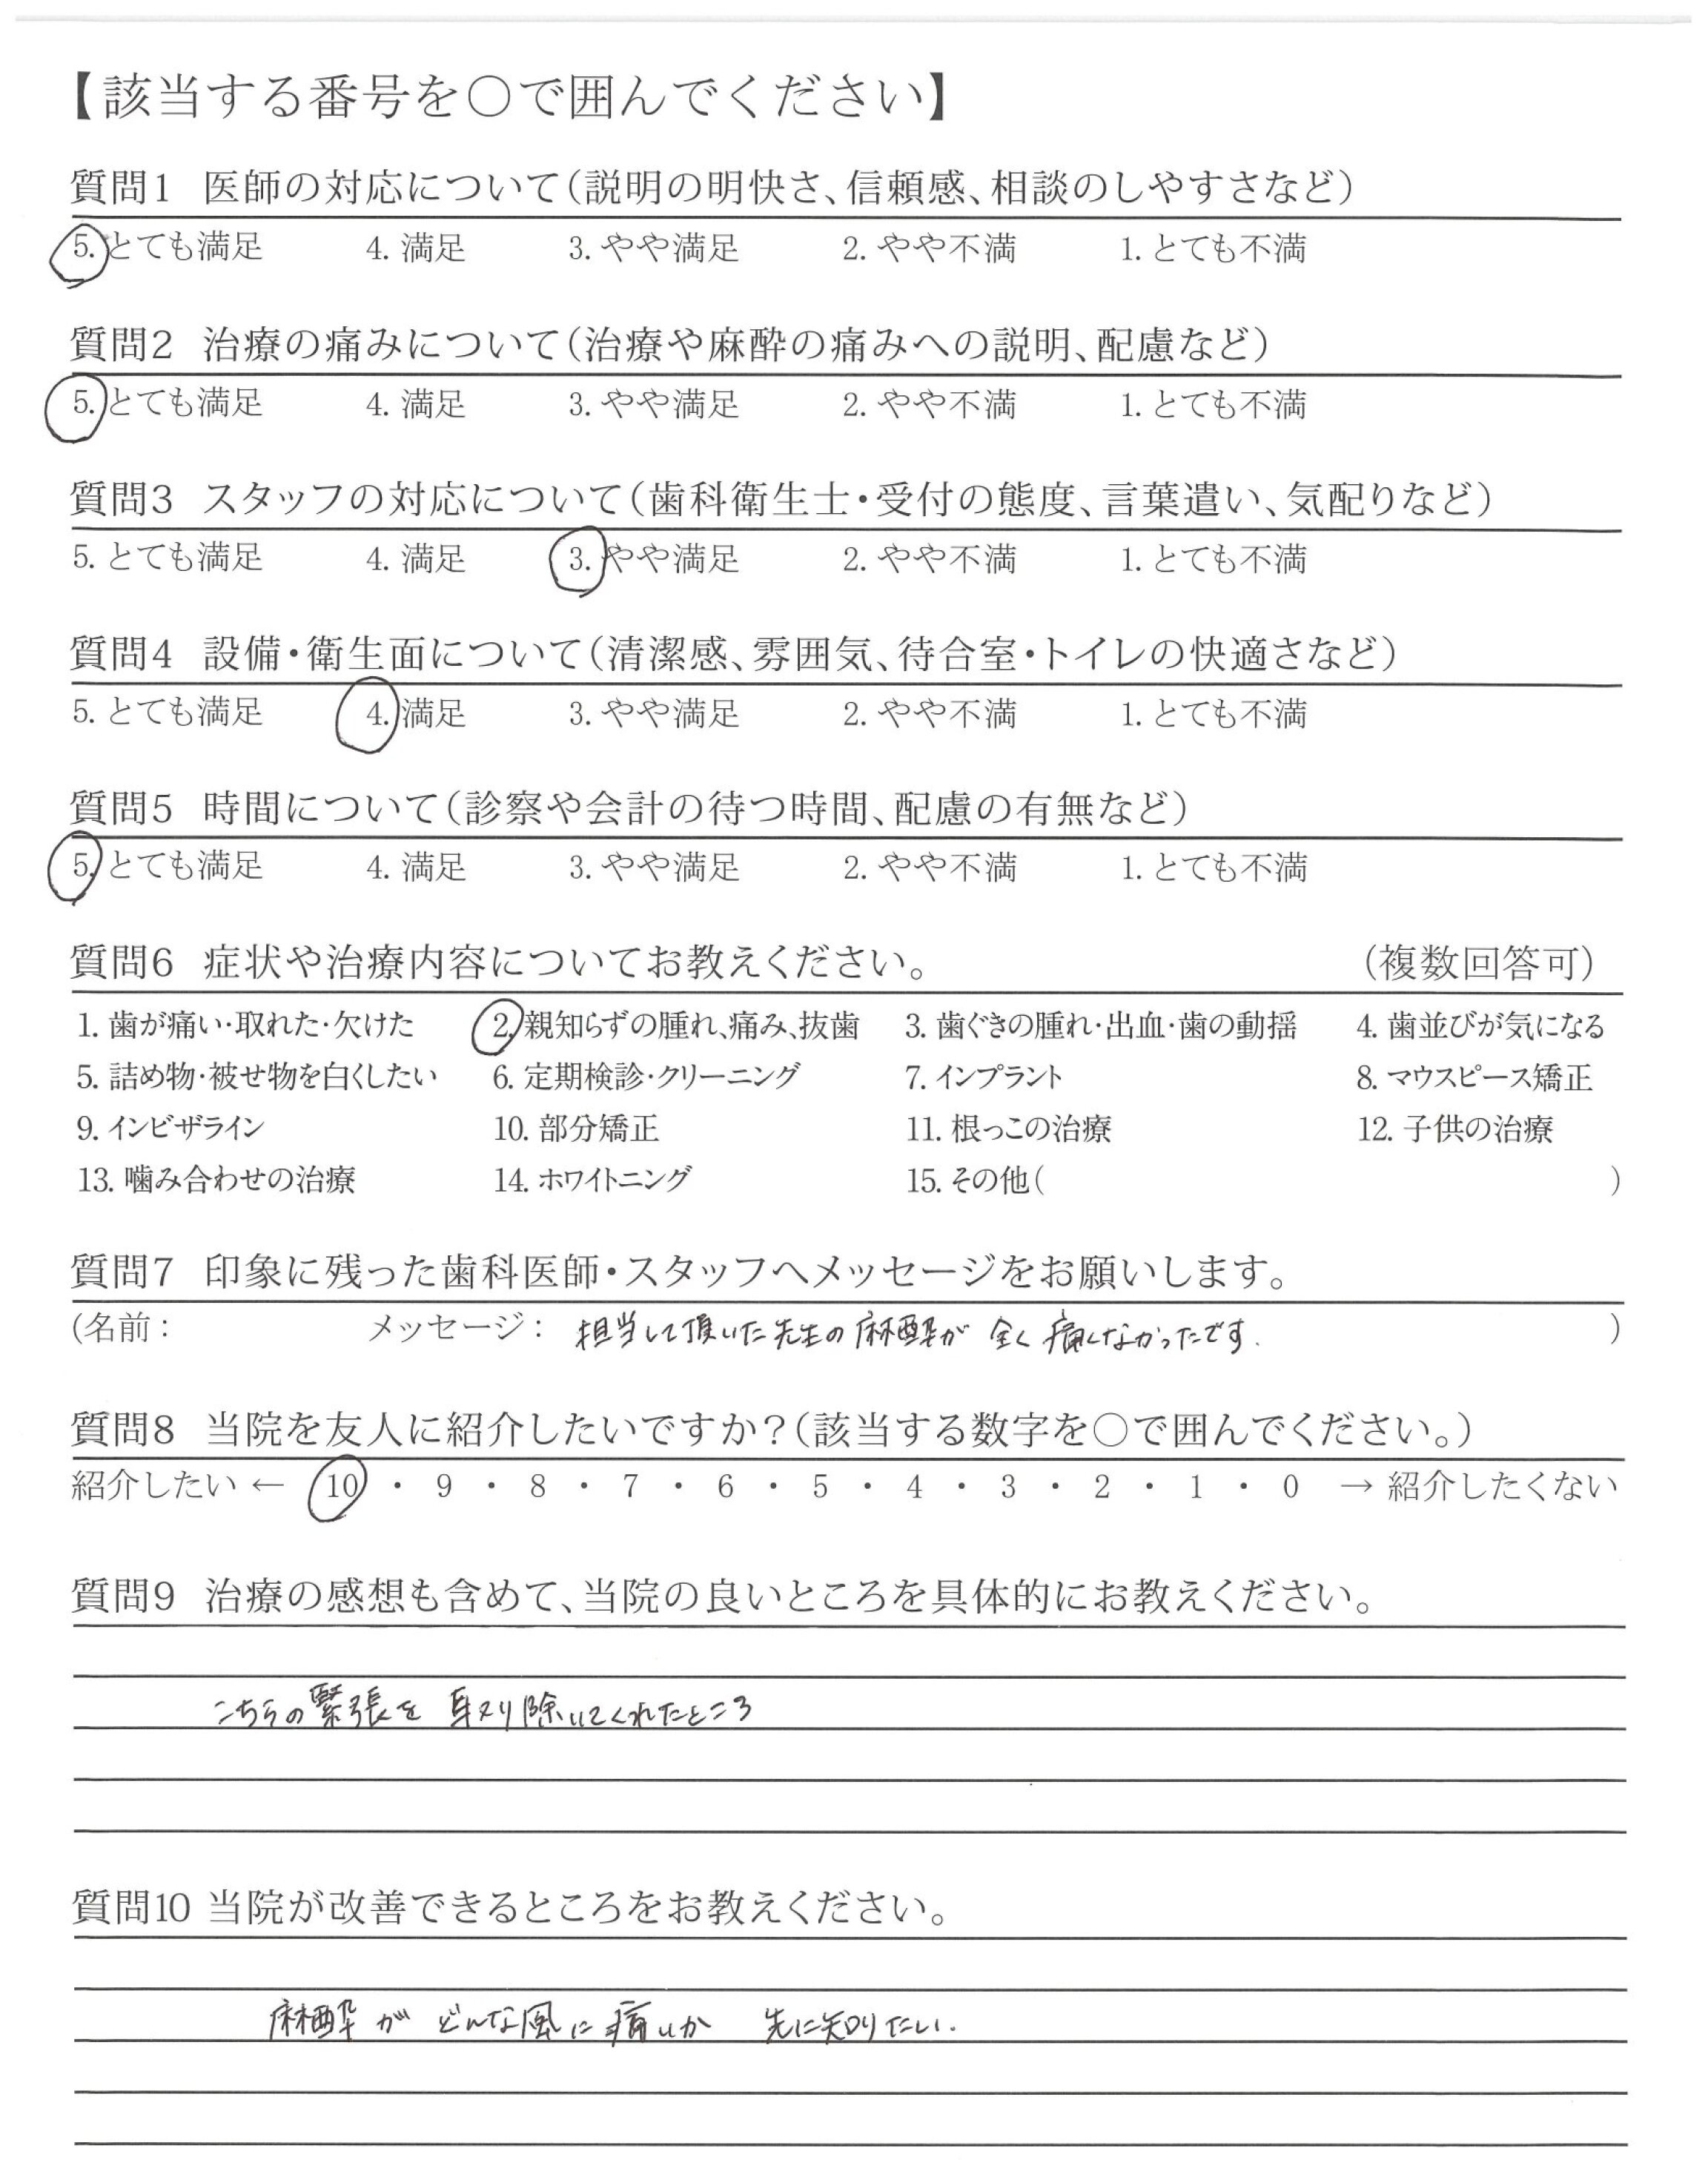 【該当する番号を○で囲んでください】
質問1 医師の対応について(説明の明快さ、信頼感、相談のしやすさなど)
5. とても満足 4. 満足 3. やや満足 2. やや不満 1. とても不満
質問2 治療の痛みについて(治療や麻酔の痛みへの説明、配慮など)
5. とても満足 4. 満足 3. やや満足 2. やや不満 1. とても不満
質問3 スタッフの対応について(歯科衛生士・受付の態度、言葉遣い、気配りなど)
5. とても満足 4. 満足 3. やや満足 2. やや不満 1. とても不満
質問4 設備・衛生面について(清潔感、雰囲気、待合室・トイレの快適さなど)
5. とても満足 4. 満足 3. やや満足 2. やや不満 1. とても不満
質問5 時間について(診察や会計の待つ時間、配慮の有無など)
5. とても満足 4. 満足 3. やや満足 2. やや不満 1. とても不満
質問6 症状や治療内容についてお教えください。 (複数回答可)
1. 歯が痛い・取れた・欠けた 2. 親知らずの腫れ、痛み、抜歯 3. 歯ぐきの腫れ・出血・歯の動揺 4. 歯並びが気になる
5. 詰め物・被せ物を白くしたい 6. 定期検診・クリーニング 7. インプラント 8. マウスピース矯正
9. インビザライン 10. 部分矯正 11. 根っこの治療 12. 子供の治療
13. 噛み合わせの治療 14. ホワイトニング 15. その他( )
質問7 印象に残った歯科医師・スタッフへメッセージをお願いします。
(名前: メッセージ: 担当して頂いた先生の麻酔が 全く痛くなかったです. )
質問8 当院を友人に紹介したいですか?(該当する数字を○で囲んでください。)
紹介したい ← 10 ・ 9 ・ 8 ・ 7 ・ 6 ・ 5 ・ 4 ・ 3 ・ 2 ・ 1 ・ 0 → 紹介したくない
質問9 治療の感想も含めて、当院の良いところを具体的にお教えください。
こちらの緊張を 取り除いてくれたところ
質問10 当院が改善できるところをお教えください。
麻酔が どんな風に痛いか 先に知りたい.